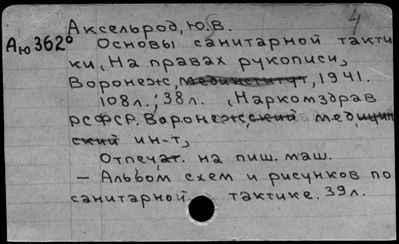 4
Аксельрод, Ю.В.
Аю362⁰
Основы санитарной такти
ки, На правах рукописи,
Воронеж, мединститут, 1941.
108л.; 38л. (Наркомздрав
РСФСР. Воронежский медицин
ский ин-т,
Отпечат. на пиш. маш.
— Альбом схем и рисунков по
санитарной тактике. 39л.